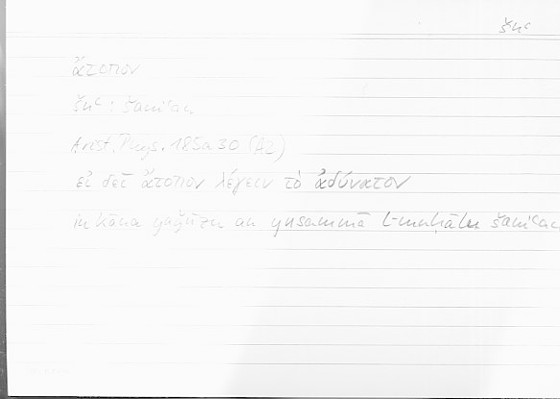 šnʿ
ἄτοπον
šnʿ : šanīʿan
Arist. Phys. 185a30 (A2)
εἰ δεῖ ἄτοπον λέγειν τὸ ἀδύνατον
in kāna yaǧūzu an yusammā l-muḥālu šanīʿan